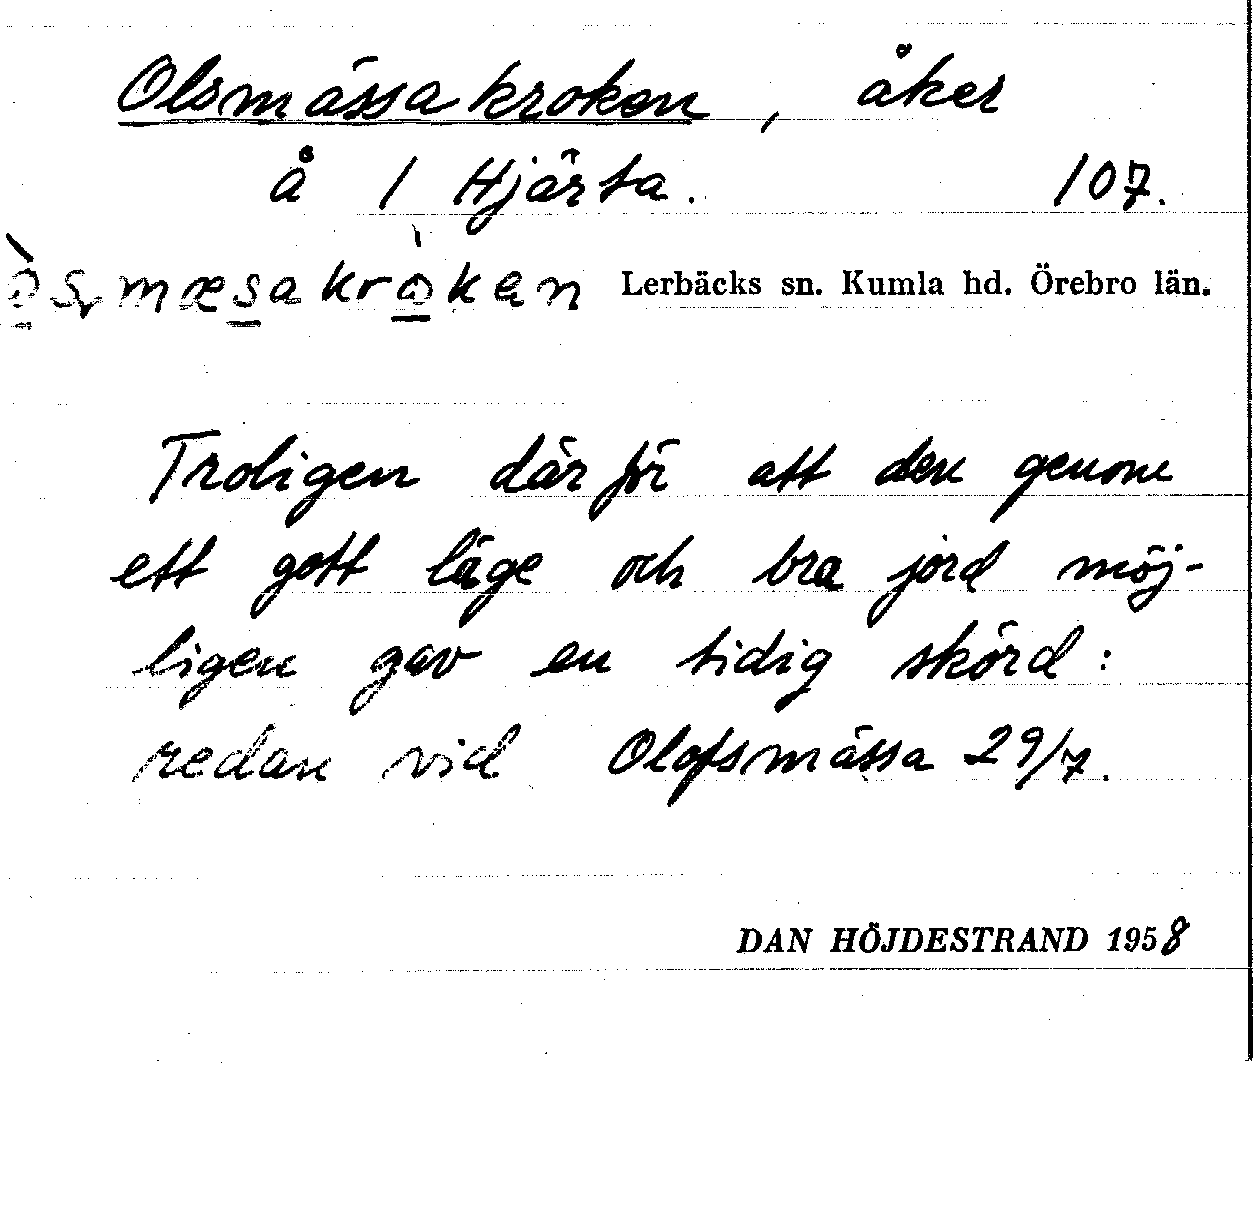 Olsmässakroken, åker
å 1 Hjärta. 107.
òs̩mæsakròkan Lerbäcks sn. Kumla hd. Örebro län.
Troligen därför att den genom
ett gott läge och bra jord möj-
ligen gav en tidig skörd:
redan vid Olofsmässa 29/7.
DAN HÖJDESTRAND 1958